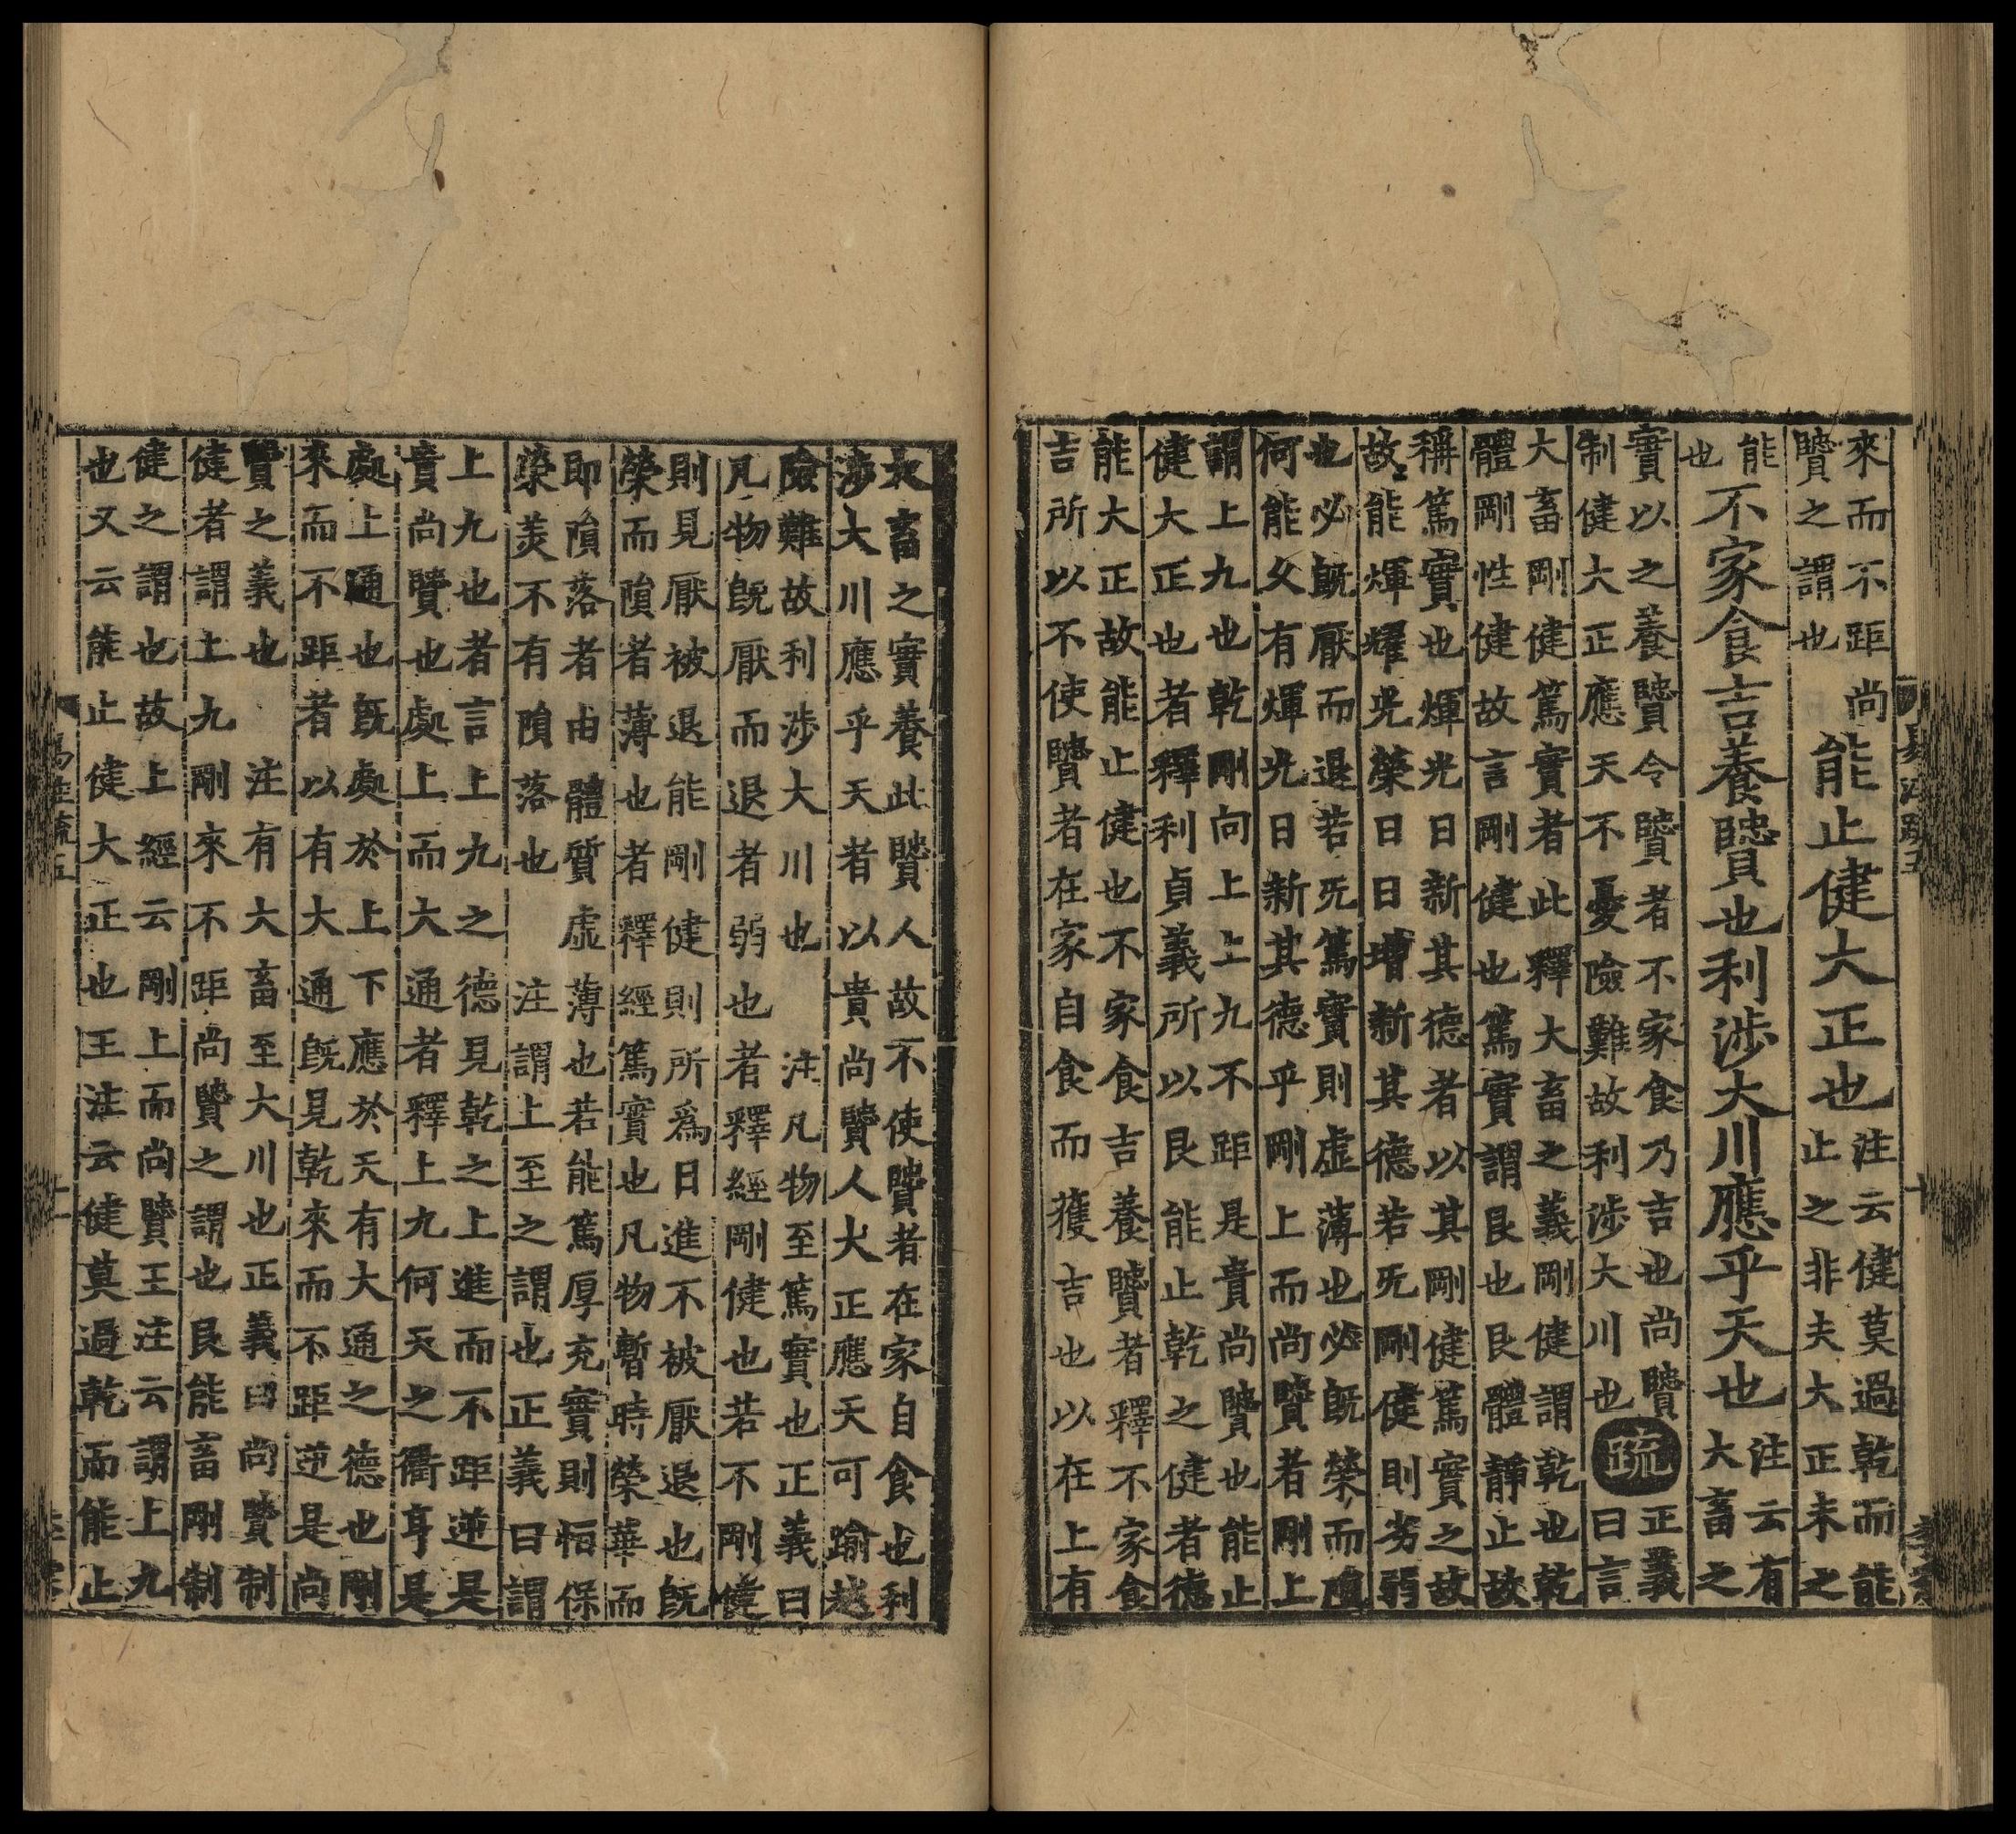 來而不距尚
贒之謂也
能止健大正也
注云健莫過乾而能
止之非夫大正未之
能
也
不家食吉養贒也利涉大川應乎天也
注云有
大畜之
實以之養贒令贒者不家食乃吉也尚贒
制健大正應天不憂險難故利涉大川也
疏
正義
曰言
大畜剛健篤實者此釋大畜之義剛健謂乾也乾
體剛性健故言剛健也篤實謂艮也艮體靜止故
稱篤實也煇光日新其德者以其剛健篤實之故
故能煇耀光榮日日增新其德若旡剛健則劣弱
也必既厭而退若旡篤實則虛薄也必既榮而隕
何能久有煇光日新其德乎剛上而尚贒者剛上
謂上九也乾剛向上上九不距是貴尚贒也能止
健大正也者釋利貞義所以艮能止乾之健者德
能大正故能止健也不家食吉養贒者釋不家食
吉所以不使贒者在家自食而獲吉也以在上有
大畜之實養此贒人故不使贒者在家自食也利
涉大川應乎天者以貴尚贒人大正應天可踰越
險難故利涉大川也　注凡物至篤實也正義曰
凡物既厭而退者弱也者釋經剛健也若不剛健
則見厭被退能剛健則所爲日進不被厭退也既
榮而隕者薄也者釋經篤實也凡物暫時榮華而
即隕落者由體質虛薄也若能篤厚充實則恒保
榮美不有隕落也　注謂上至之謂也正義曰謂
上九也者言上九之德見乾之上進而不距逆是
貴尚贒也處上而大通者釋上九何天之衢亨是
處上通也既處於上下應於天有大通之德也剛
來而不距者以有大通既見乾來而不距逆是尚
賢之義也　注有大畜至大川也正義曰尚贒制
健者謂上九剛來不距尚贒之謂也艮能畜剛制
健之謂也故上經云剛上而尚贒王注云謂上九
也又云能止健大正也王注云健莫過乾而能止